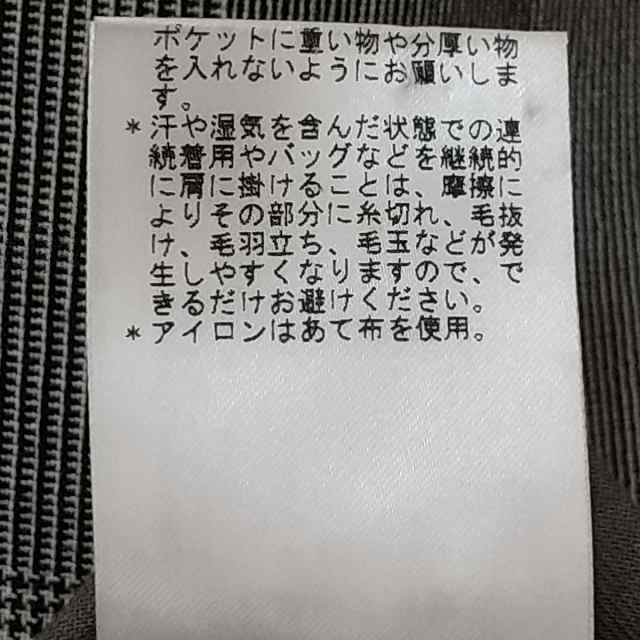 ポケットに重い物や分厚い物
を入れないようにお願いしま
す。
*汗や湿気を含んだ状態での連
続着用やバッグなどを継続的
に肩に掛けることは、摩擦に
よりその部分に糸切れ、毛抜
け、毛羽立ち、毛玉などが発
生しやすくなりますので、で
きるだけお避けください。
*アイロンはあて布を使用。